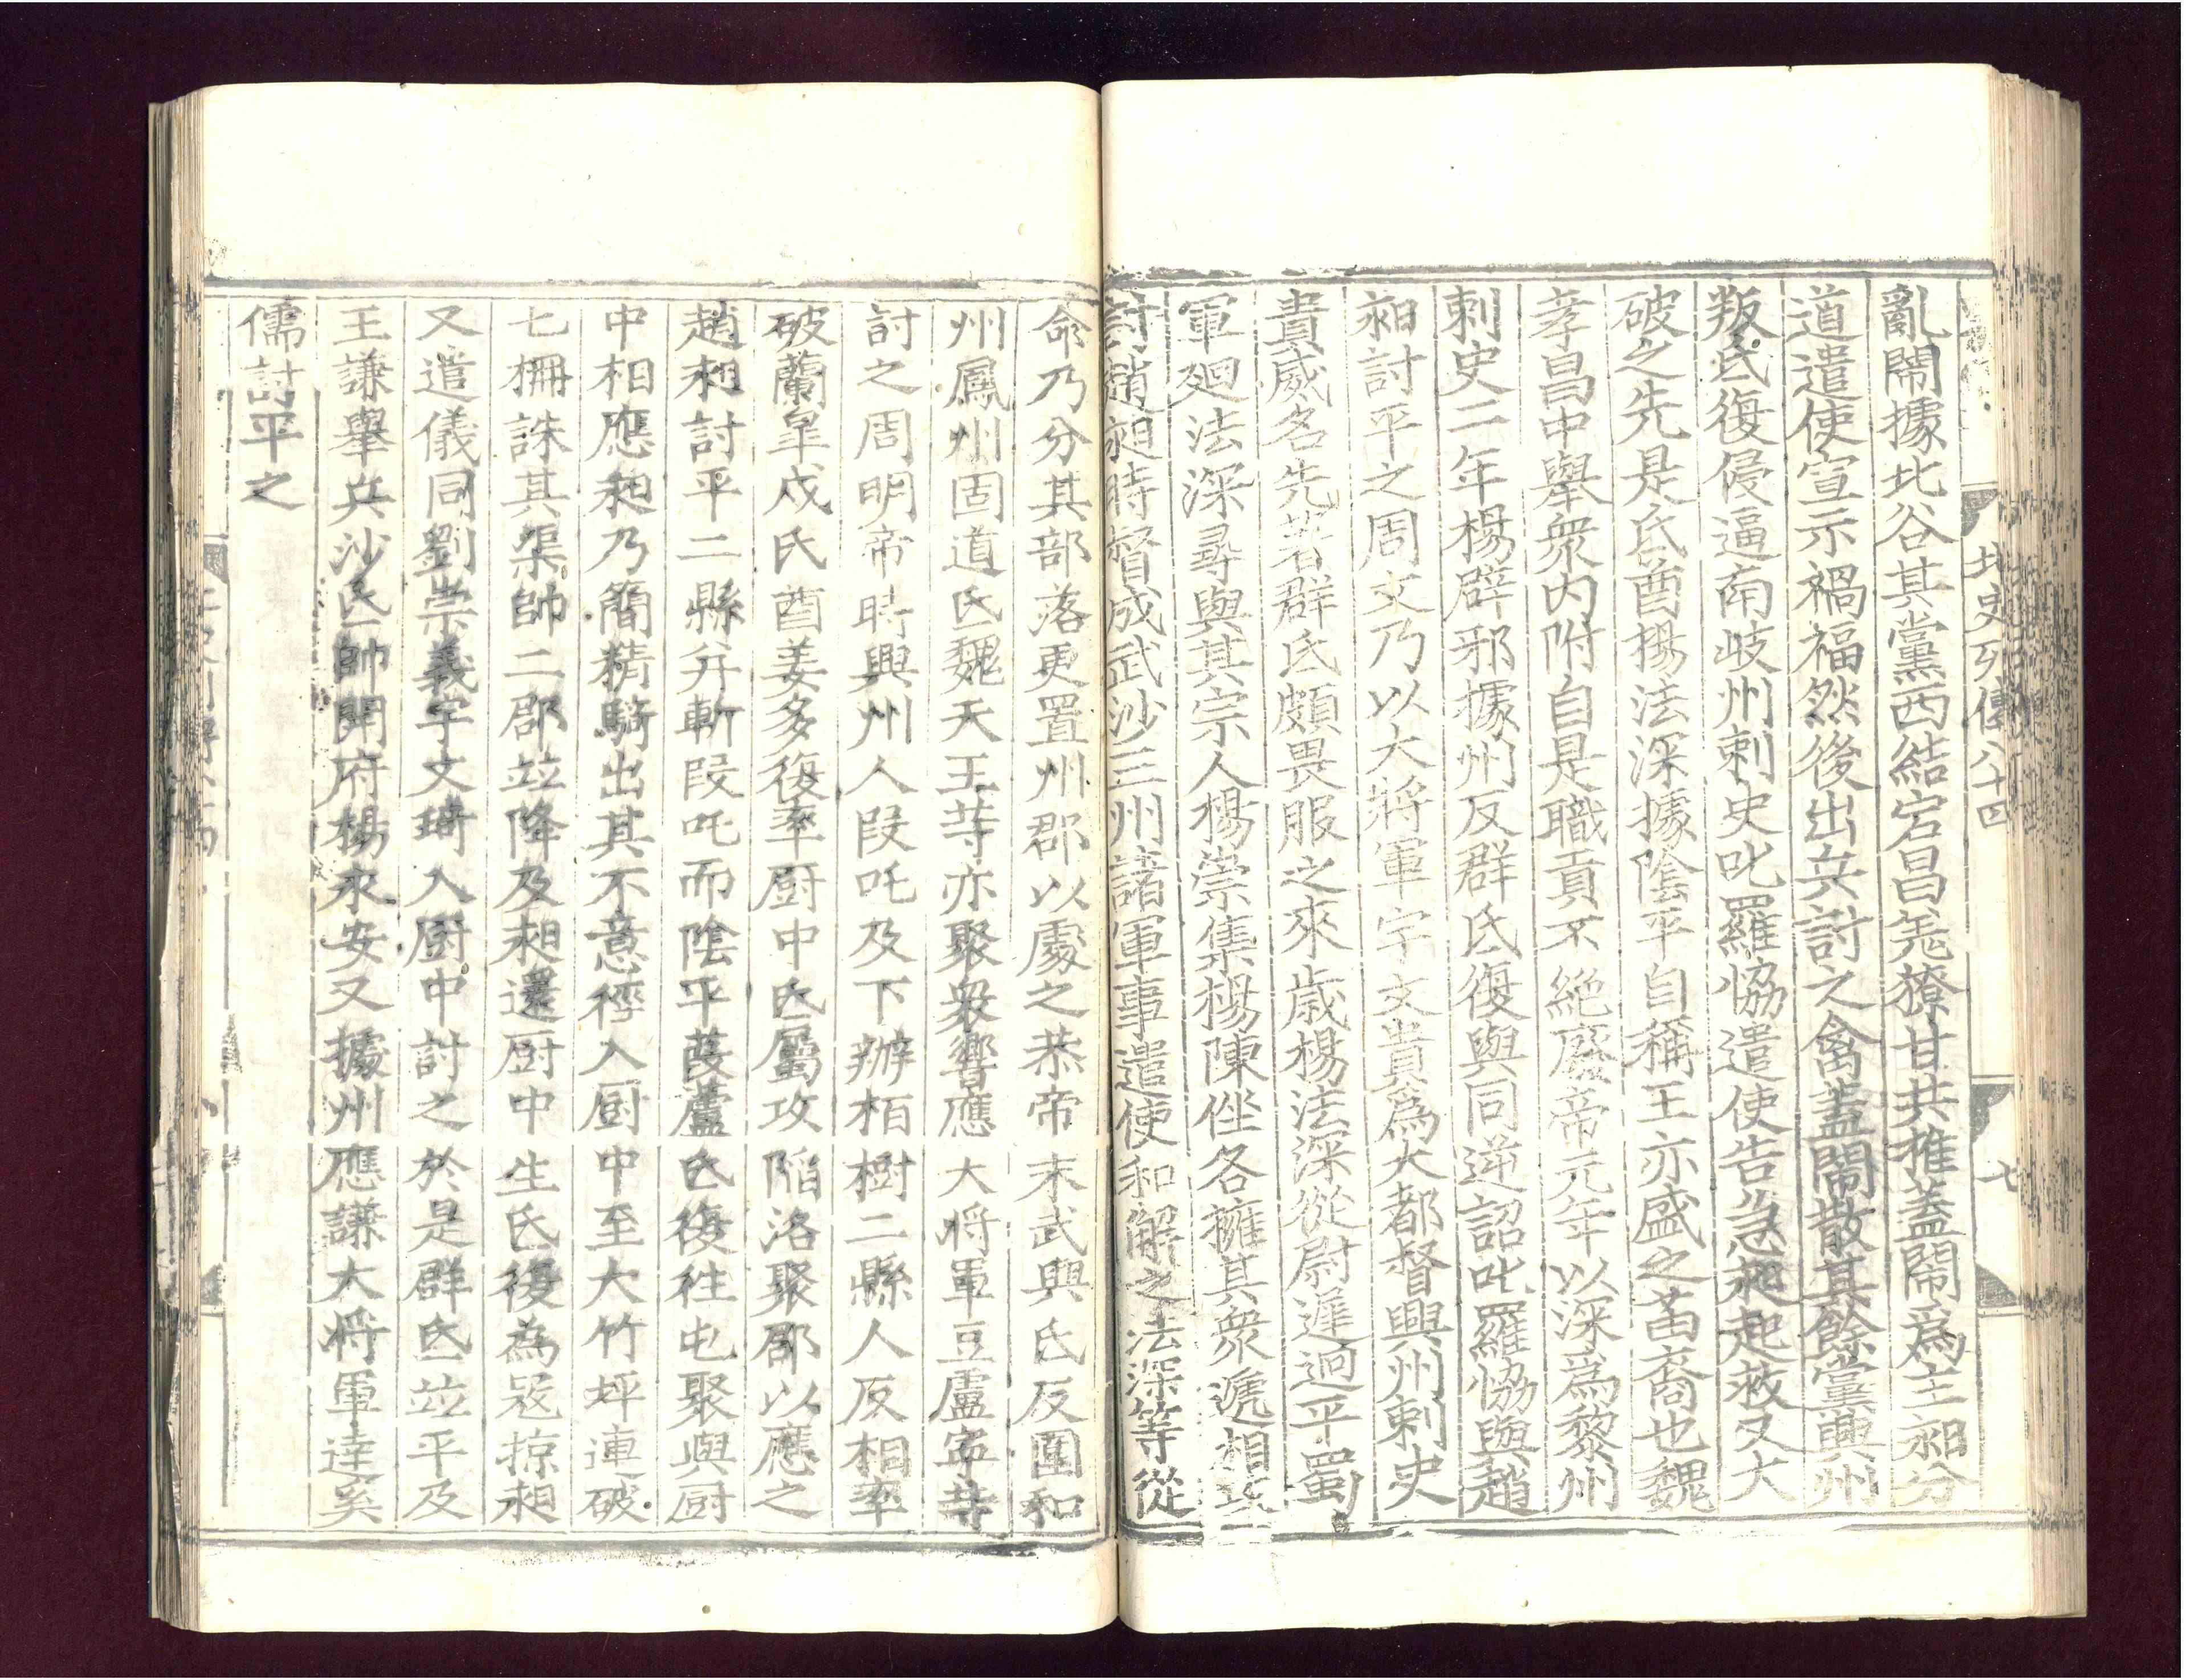 北史列傳八十四
七
亂鬧據北谷其黨西結宕昌羌獠甘共推蓋鬧爲主昶分
道遣使宣示禍福然後出兵討之禽蓋鬧散其餘黨興州
叛氐復侵逼南岐州刺史叱羅恊遣使告急昶赴救又大
破之先是氐酋楊法深據陰平自稱王亦盛之苗裔也魏
孝昌中舉衆内附自是職貢不絶廢帝元年以深爲黎州
刺史二年楊辟邪據州反群氐復與同逆詔叱羅恊與趙
昶討平之周文乃以大將軍宇文貴爲大都督興州刺史
貴威名先著群氐頗畏服之來歳楊法深從尉遲逈平蜀
軍廻法深尋與其宗人楊崇集楊陳侳各擁其衆遞相攻
討趙昶時督成武沙三州諸軍事遣使和解之法深等從
命乃分其部落更置州郡以處之恭帝末武興氐反圍和
州鳳州固道氐魏天王等亦聚衆響應大将軍豆盧寧等
討之周明帝時興州人段吒及下辦栢樹二縣人反相率
破蘭皐戍氐酋姜多復率厨中氐屬攻陷洛聚郡以應之
趙昶討平二縣幷斬段吒而陰平葭蘆氐復往屯聚與厨
中相應昶乃簡精騎出其不意徑入厨中至大竹坪連破
七栅誅其渠帥二郡竝降及昶還厨中生氐復為寇掠昶
又遣儀同劉崇義宇文琦入厨中討之於是群氐竝平及
王謙舉兵沙氐帥開府楊永安又據州應謙大将軍達奚
儒討平之